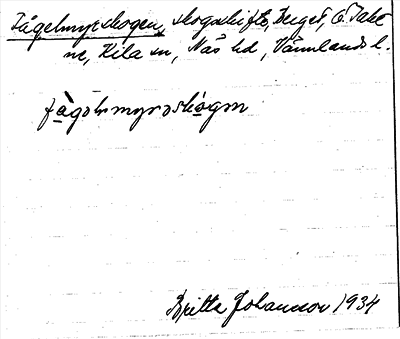 Fågelmyrskogen, skogsskifte, Berget, Ö. Takene, Kila sn, Näs hd, Värmlands l.
fågəlmyrəskògən
Britta Johansson 1934